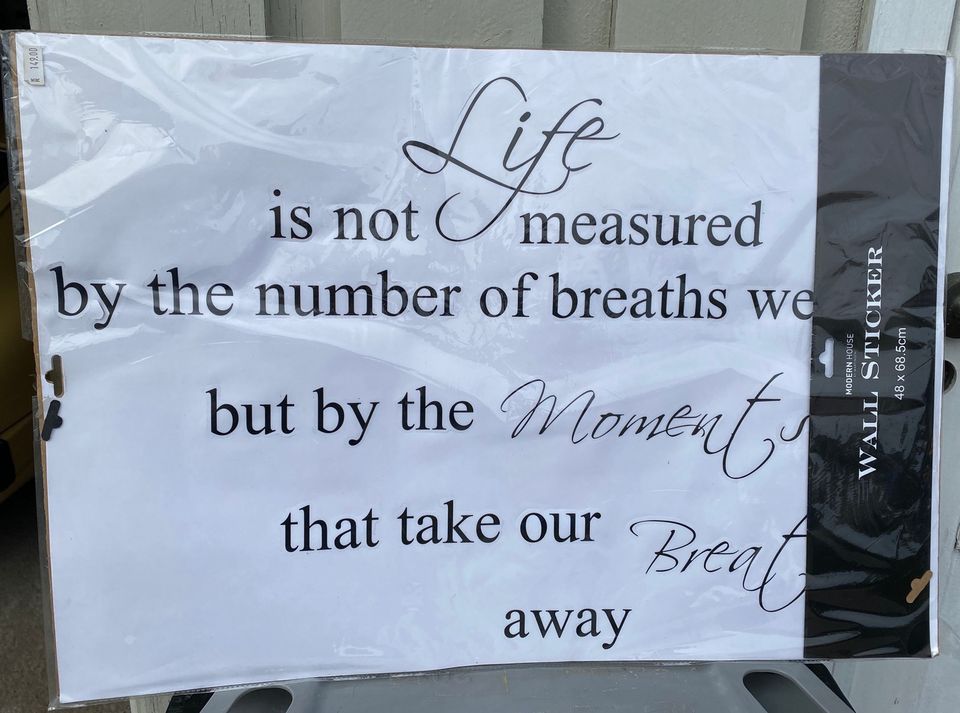 149.00
Life
is not measured
by the number of breaths we
but by the Moments
that take our Breat
away
MODERN HOUSE
WALL STICKER
48 x 68.5cm